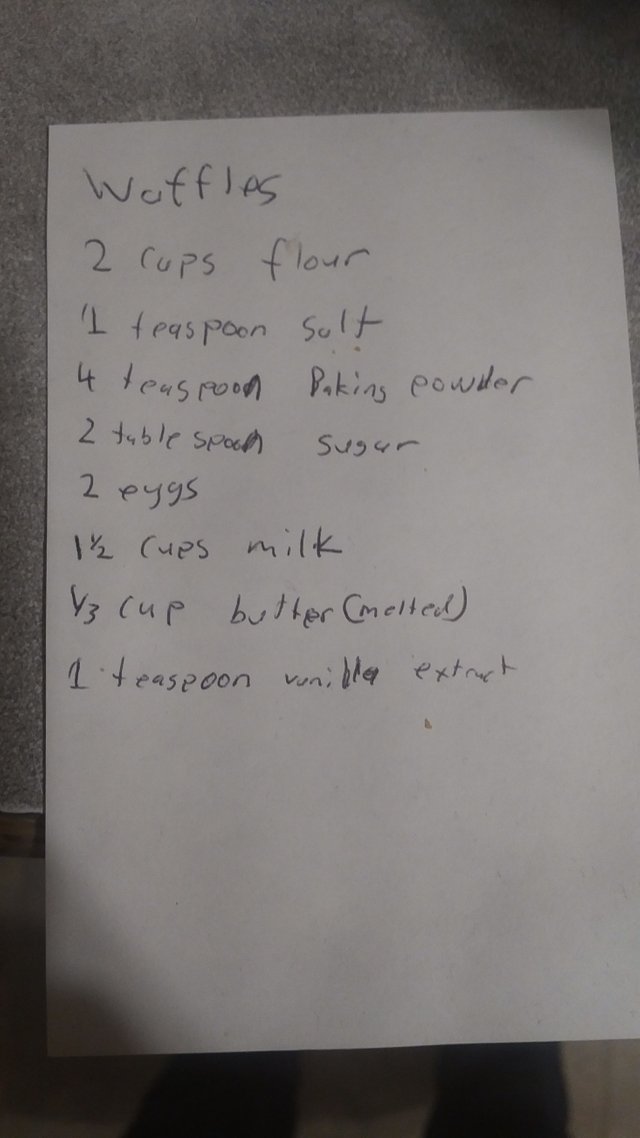 Waffles
2 cups flour
1 teaspoon salt
4 teaspoon Baking powder
2 tablespoon sugar
2 eggs
1 1/2 cups milk
1/3 cup butter (melted)
1 teaspoon vanilla extract